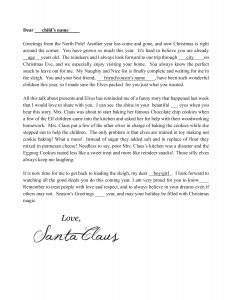 Dear ___child's name___
Greetings from the North Pole! Another year has come and gone, and now Christmas is right
around the corner. You have grown so much this year. It's hard to believe you are already
__age__ years old. The reindeers and I always look forward to our trip through ___city___ on
Christmas Eve, and we especially enjoy visiting your home. You always know the perfect
snack to leave out for me. My Naughty and Nice list is finally complete and waiting for me in
sleigh. You and your best friend, __friend/cousin's name__, have been such wonderful
children this year, so I made sure the Elves packed for you just what you wanted.
All this talk about presents and Elves has reminded me of a funny story that happened last week
that I would love to share with you. I can see the shine in your beautiful ___eyes when you
hear this story. Mrs. Claus was about to start baking her famous Chocolate chip cookies when
a few of the Elf children came into the kitchen and asked her for help with their woodworking
homework. Mrs. Claus put a few of the other elves in charge of baking the cookies while she
stepped out to help the children. The only problem is that elves are trained in toy making not
cookie baking! What a mess! Instead of sugar they added salt and in replace of flour they
mixed in parmesan cheese! Needless to say, poor Mrs. Claus's kitchen was a disaster and the
Eggnog Cookies tasted less like a sweet treat and more like reindeer snacks! Those silly elves
always keep me laughing.
It is now time for me to get back to loading the sleigh, my dear __boy/girl__. I look forward to
watching all the good deeds you do this coming year. I am very proud of you to know____.
Remember to treat people with love and respect, and to always believe in your dreams even if
others may not. Season's Greetings ____ year, and may your holiday be filled with Christmas
magic.
Love,
Santa Claus